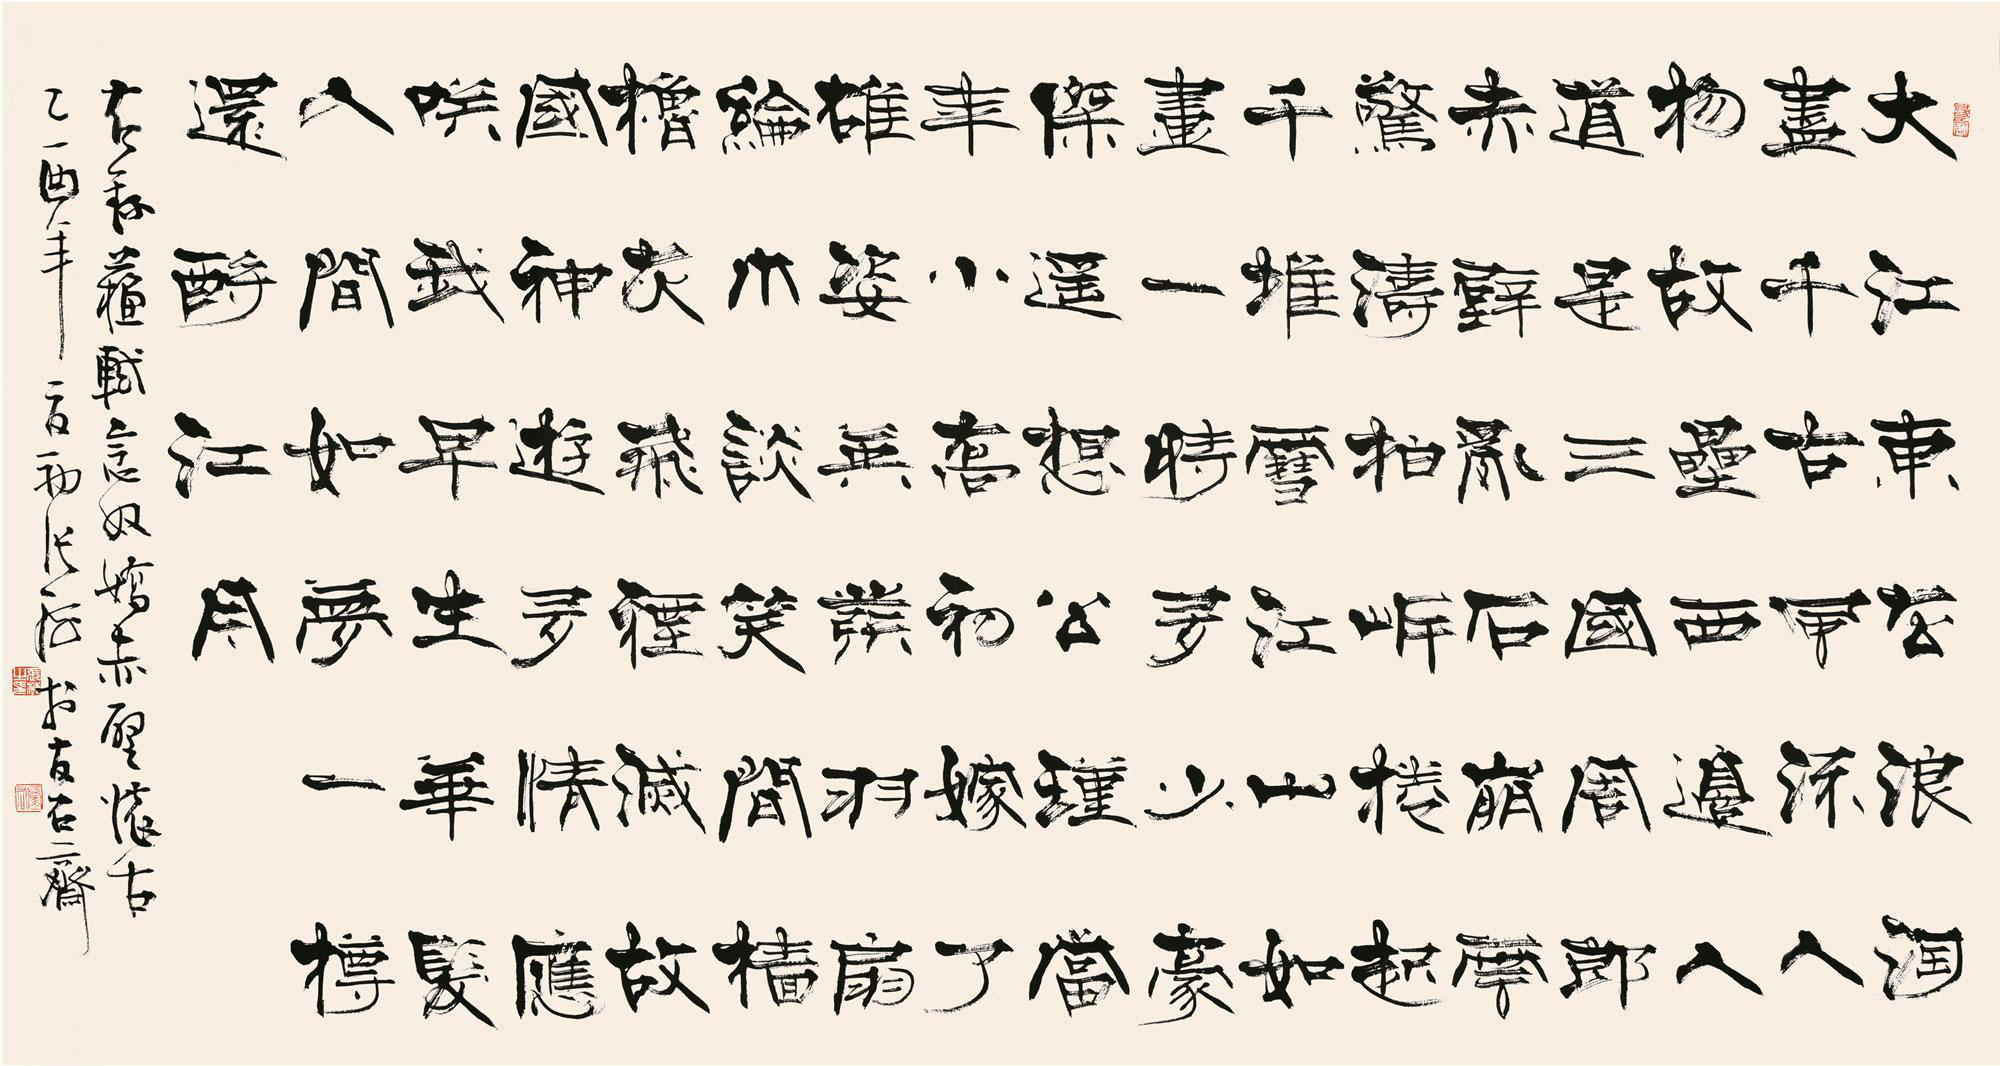 大江東去浪淘
盡千古風流人
物故壘西邊人
道是三國周郎
赤壁亂石崩雲
驚濤拍岸捲起
千堆雪江山如
畫一時多少豪
傑遥想公瑾當
年小喬初嫁了
雄姿英發羽扇
綸巾談笑間檣
櫓灰飛煙滅故
國神遊多情應
笑我早生華髮
人間如夢一樽
還酹江月
右録蘇軾念奴嬌赤壁懷古
乙酉年初張海於石齋